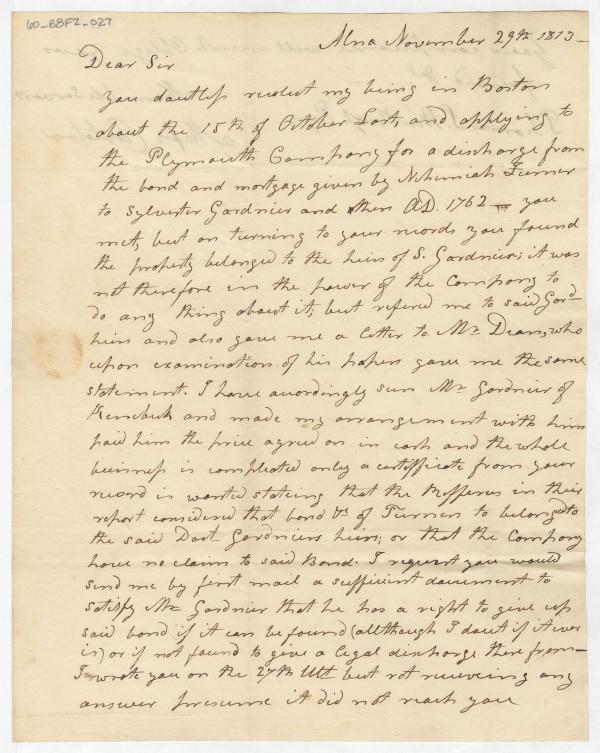 60_B8F2_027
Alna November 29th 1813
Dear Sir
you doutless recolect my being in Boston
about the 15th of October Last, and applying to
the Plymouth Company for a discharge from
the bond and mortgage given by Nehimiah Turner
to Sylvester Gardnier and others AD. 1762 — you
met, but on turning to your records you found
the property belonged to the heirs of S. Gardnier; it was
not therefore in the power of the Company to
do any thing about it; but refered me to said Gard-
heirs and also gave me a letter to Mr Dean, who
upon examination of his papers gave me the same
statement. I have accordingly seen Mr Gardnier of
Kenebeck and made my arrangement with him
paid him the price agreed on in cash and the whole
buisness is compleated only a certifficate from your
record is wanted stateing that the Refferees in their
report considered that bond &c of Turner to belong to
the said Doct Gardniers heirs; or that the Company
have no claim to said Bond. I request you would
send me by first mail a sufficient document to
satisfy Mr Gardnier that he has a right to give up
said bond if it can be found (allthough I dout if it ever
is) or if not found to give a legal discharge therefrom —
I wrote you on the 27th Ult but not receiving any
answer presume it did not reach you